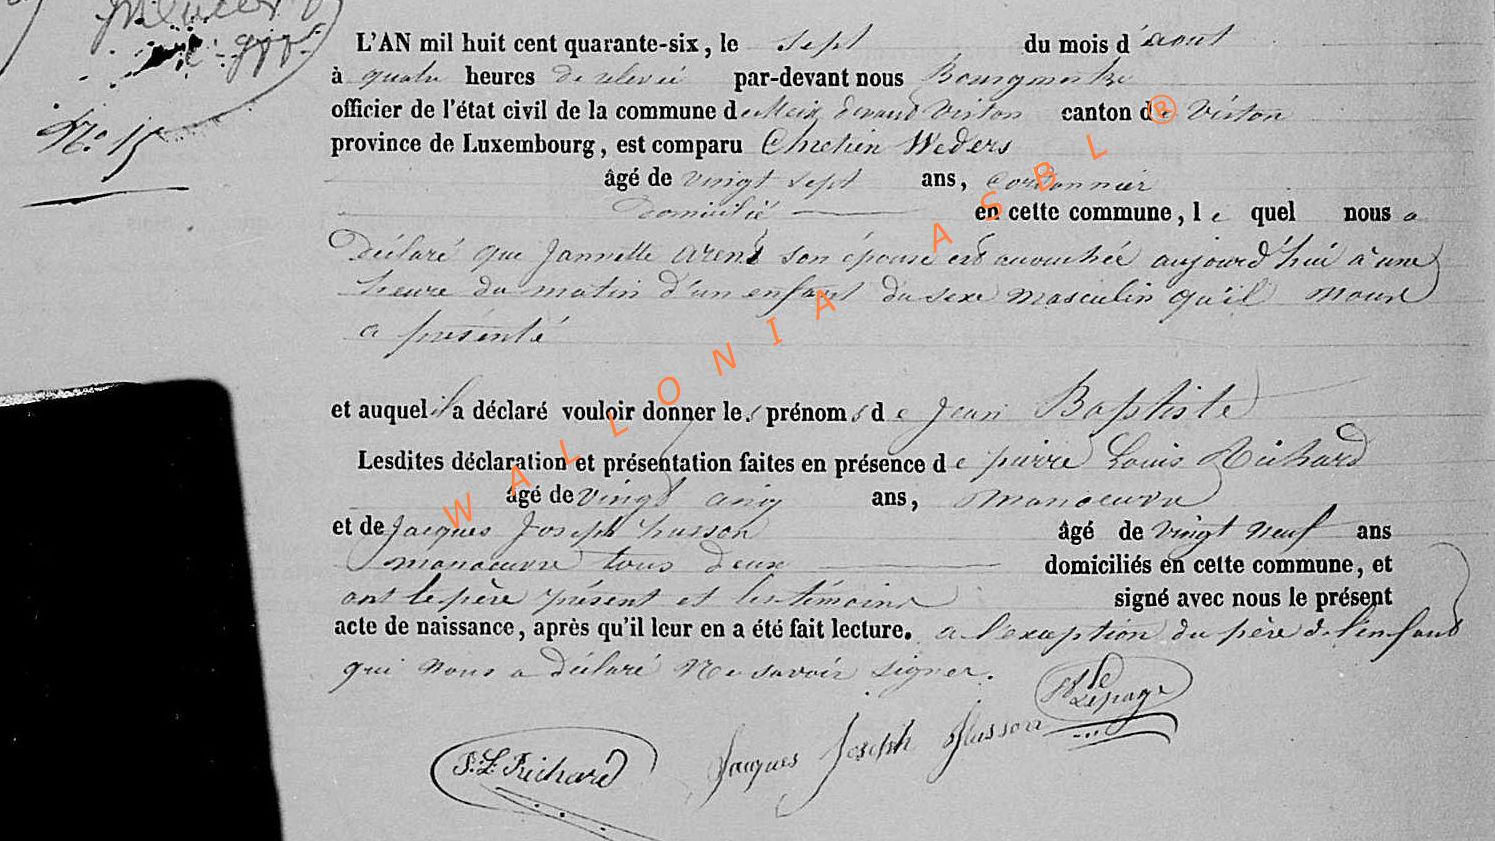 N.o 15
L'AN mil huit cent quarante-six, le sept du mois d'aout
à quatre heures de relevée par-devant nous Bourgmestre
officier de l'état civil de la commune de Meix devant Virton canton de Virton
province de Luxembourg, est comparu Chretien Weders
âgé de vingt sept ans, cordonnier
domicilié en cette commune, le quel nous a
déclaré que Jannette arens son épouse est accouchée aujourd'hui à une
heure du matin d'un enfant du sexe masculin qu'il nous
a présenté
et auquel il a déclaré vouloir donner les prénoms de Jean Baptiste
Lesdites déclaration et présentation faites en présence de pierre Louis Richard
âgé de vingt cinq ans, manoeuvre
et de Jacques Joseph husson âgé de vingt neuf ans
manoeuvre tous deux domiciliés en cette commune, et
ont le père présent et les témoins signé avec nous le présent
acte de naissance, après qu'il leur en a été fait lecture. a l'exception du père de l'enfant
qui nous a déclaré ne savoir signer.
Lepage
P. L. Richard Jacques Joseph Husson
WALLONIA ASBL ®